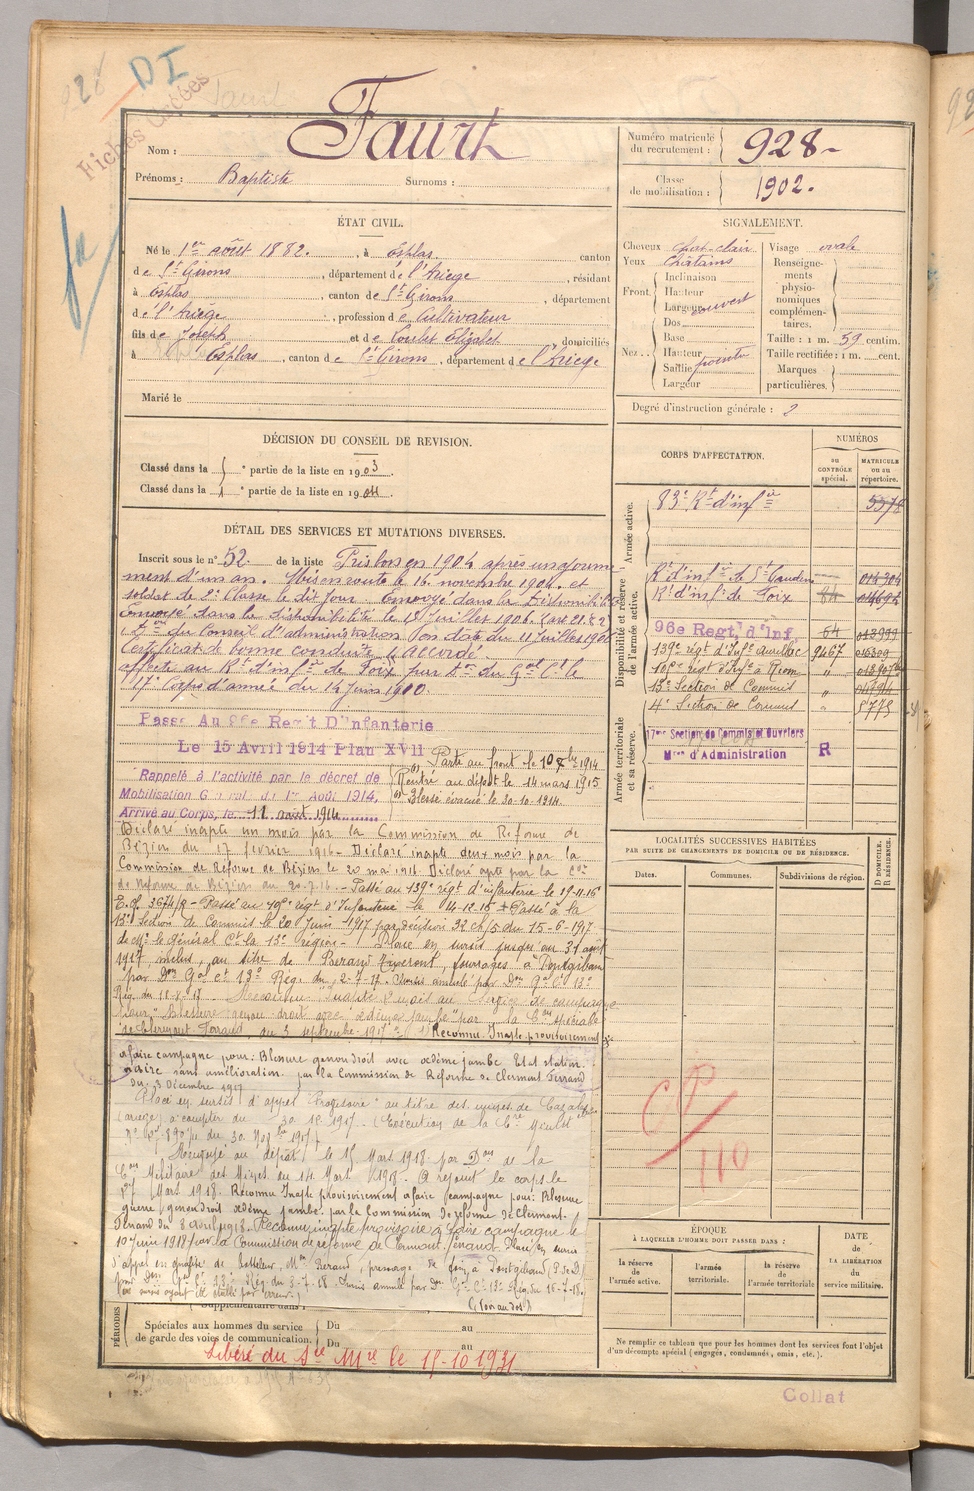 928
DI
Faurt
Fiches Collées
Nom : Faurt
Prénoms : Baptiste Surnoms :
Numéro matricule du recrutement : 928
Classe de mobilisation : 1902.
ÉTAT CIVIL.
Né le 1er août 1882. , à Esplas canton
de St Girons , département de l'Ariège , résidant
à Esplas , canton de St Girons , département
de l'Ariège , profession de Cultivateur
fils de Joseph et de Élizabet domiciliés
à Esplas , canton de St Girons , département de l'Ariège
Marié le
SIGNALEMENT.
Cheveux chat-clair
Yeux châtains
Front. Inclinaison
Hauteur
Largeur ouvert
Nez.. Dos
Base
Hauteur
Saillie pointu
Largeur
Visage ovale
Renseignements physionomiques complémentaires.
Taille : 1 m. 59 centim.
Taille rectifiée : 1 m. cent.
Marques particulières.
Degré d'instruction générale : 2
DÉCISION DU CONSEIL DE REVISION.
Classé dans la e partie de la liste en 1903.
Classé dans la 1 e partie de la liste en 1904.
DÉTAIL DES SERVICES ET MUTATIONS DIVERSES.
Inscrit sous le n° 52 de la liste Pris bon en 1904 après un ajourne
ment d'un an. Mis en route le 16 novembre 1904. et
soldat de 2e Classe le dit jour. Envoyé dans la Disponibilité
Envoyé dans la disponibilité le 18 juillet 1906. (art. 21. § 2)
du Conseil d'administration en date du 11 juillet 1906
Certificat de bonne conduite "Accordé"
affecté au Rt d'infie de Foix par Don du Gal Ct le
17e Corps d'armée du 14 juin 1910.
Passé Au 96e Regt D'Infanterie
Le 15 Avril 1914 Plan XVII
Rappelé à l'activité par le décret de
Mobilisation Générale du 1er Août 1914,
Arrivé au Corps, le 11 août 1914
Parti au front le 10 1914
Rentré au dépôt le 14 mars 1915
Blessé évacué le 30-10-1914.
Déclaré inapte un mois par la Commission de Réforme de
Béziers du 17 février 1916 - Déclaré inapte deux mois par la
Commission de Réforme de Béziers le 20 mai 1916. Déclaré apte par la Con
de Réforme de Béziers du 20-7-16. - Passé au 139e régt d'infanterie le 19-11-16
Passé au 105e régt d'Infanterie le 14-12-16 Passé à la
13e Section de Commis le 20 Juin 1917 par décision 32 ch/5 du 15-6-1917
de Mr le Général Ct la 13e région - Placé en sursis jusqu'au 31 août
1917, inclus, au titre de Beraud fourrages à Pontgibaud
par Don Gal Ct 13e Rég. du 2-7-17. Sursis annulé par Don Gal Ct 13e
Rég. du
de Clermont Ferrand du 3 septembre 1917 Reconnu Inapte provisoirement
afaire campagne pour: Blessure genou droit avec œdème jambe Etat station
naire sans amélioration. par la Commission de Réforme de Clermont Ferrand
Du 3 Décembre 1917
Placé en sursis d'appel Provisoire au titre des mines de
(Ariège) à compter du 30 1917. (Exécution de la
du 30
Renvoyé au dépôt le 15 Mart 1918 par Don de la
Con Militaire des Mines du 14 Mart 1918. A rejoint le corps le
Mart 1918. Reconnu Inapte provisoirement afaire campagne pour: Blessure
guerre genou droit œdème jambe. par la Commission de réforme de Clermont.
Ferrand du 8 avril 1918. Reconnu inapte provisoire à faire campagne le
10 Juin 1918 par la Commission de réforme de Clermont. Ferrand. Placé en sursis
d'appel en qualité de botteleur, Mon Beraud, pressage de foin, à Pontgibaud (P. de D.)
par Don Gal Ct 13e Rég. du 3-7-18. Sursis annulé par Don Gal Ct 13e Rég. du 16-7-18.
(le sursis ayant été établi par erreur.)
(Voir au dos)
CORPS D'AFFECTATION.
NUMÉROS
au CONTRÔLE spécial.
MATRICULE ou au répertoire.
Armée active.
83e Rt d'infie
Disponibilité et réserve de l'armée active.
Rt d'infie de St Gaudens 014304
Rt d'infie de Foix 84
96e Regt d'Inf. 64
139e régt d'Infie Aurillac 9467
105e régt d'Infie à Riom "
13e Section de Commis "
4e Section de Commis "
Armée territoriale et sa réserve.
17me Section de Commis et Ouvriers
Mres d'Administration R
LOCALITÉS SUCCESSIVES HABITÉES
PAR SUITE DE CHANGEMENTS DE DOMICILE OU DE RÉSIDENCE.
Dates. Communes. Subdivisions de région. D DOMICILE. R RÉSIDENCE.
CP
110
ÉPOQUE
À LAQUELLE L'HOMME DOIT PASSER DANS :
la réserve de l'armée active. l'armée territoriale. la réserve de l'armée territoriale
DATE de LA LIBÉRATION du service militaire.
Ne remplir ce tableau que pour les hommes dont les services font l'objet
d'un décompte spécial (engagés, condamnés, omis, etc.).
PÉRIODES
Supplémentaire dans
Spéciales aux hommes du service de garde des voies de communication.
Du au
Du au
Libéré du Sce Mre le 15-10-1931
Collat